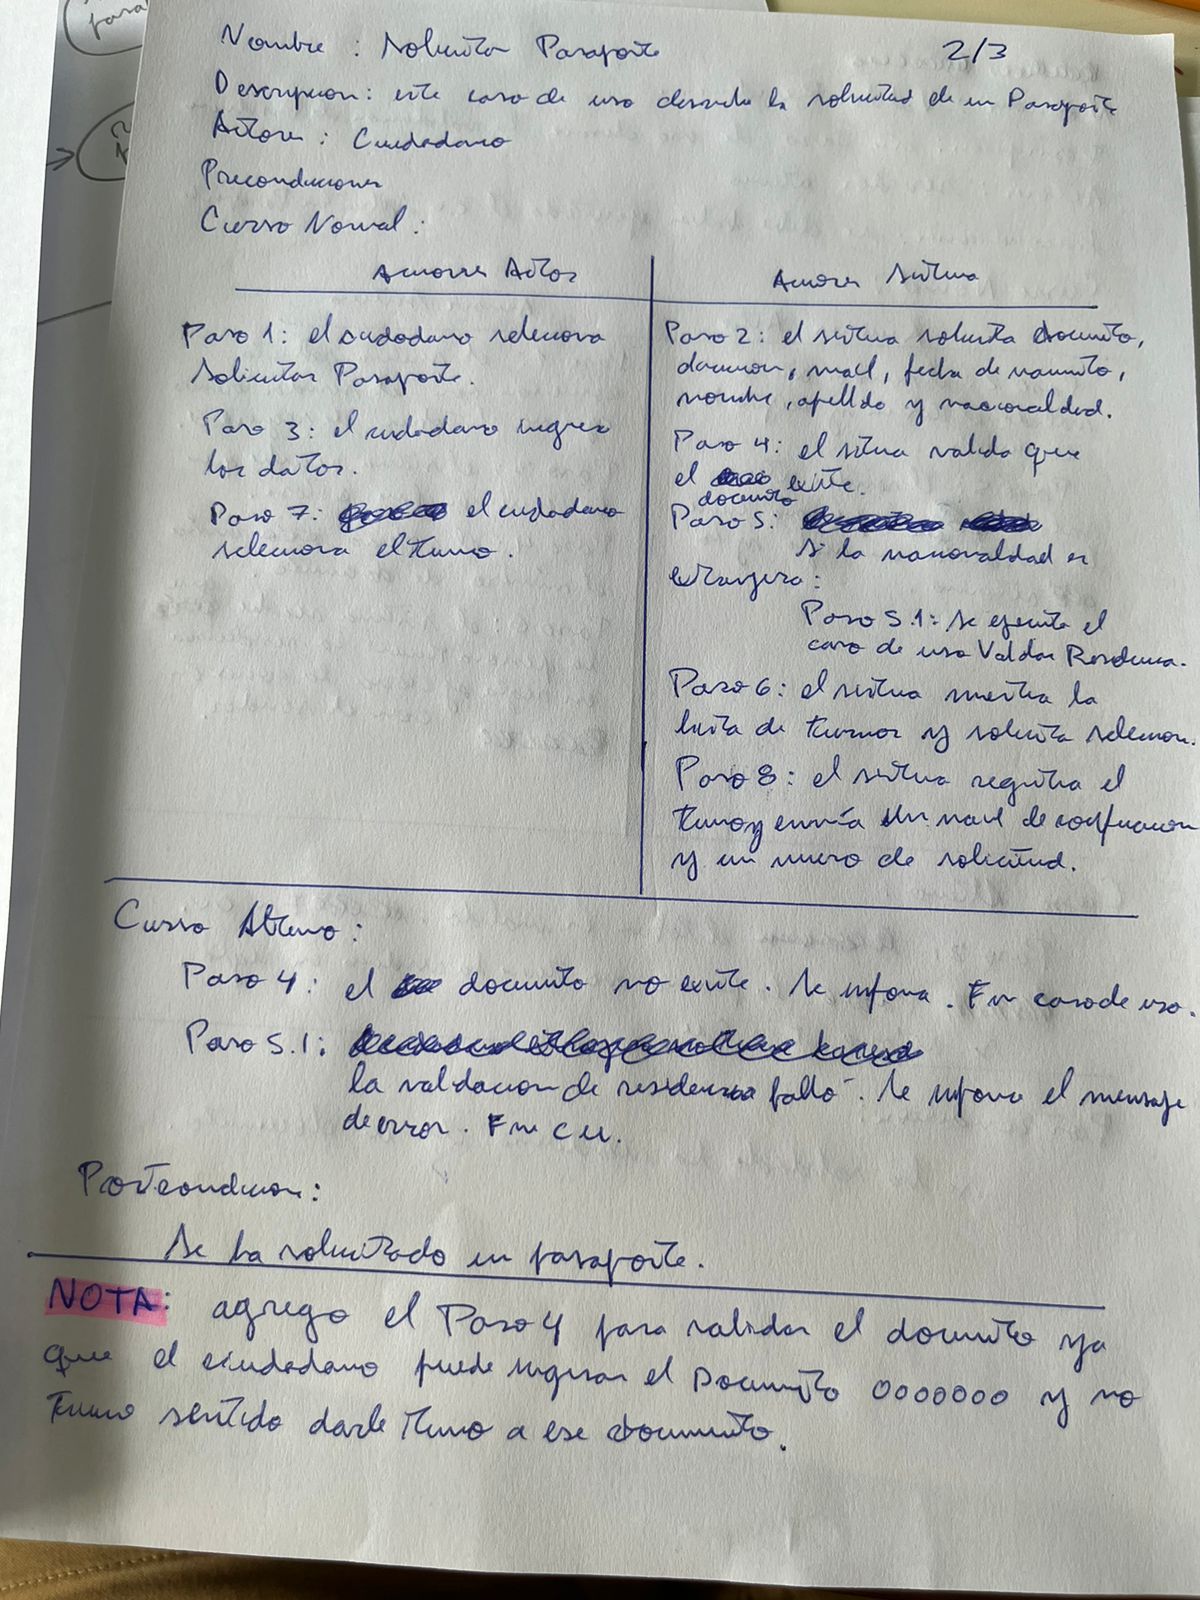 para
Nombre : Solicitar Pasaporte 2/3
Descripcion: este caso de uso describe la solicitud de un Pasaporte
Actores : Ciudadano
Precondiciones
Curso Normal :
Acciones Actor
Acciones Sistema
Paso 1: el ciudadano selecciona
Solicitar Pasaporte.
Paso 3: el ciudadano ingresa
los datos.
Paso 7: el ciudadano
selecciona el turno.
Paso 2: el sistema solicita documento,
direccion, mail, fecha de nacimiento,
nombre, apellido y nacionalidad.
Paso 4: el sistema valida que
el documento existe.
Paso 5:
Si la nacionalidad es
extranjera:
Paso 5.1: Se ejecuta el
caso de uso Validar Residencia.
Paso 6: el sistema muestra la
lista de turnos y solicita seleccion.
Paso 8: el sistema registra el
turno y envía un mail de confirmacion
y un numero de solicitud.
Curso Alterno :
Paso 4: el documento no existe. Se informa. Fin caso de uso.
Paso 5.1:
la validacion de residencia falló. Se informa el mensaje
de error. Fin CU.
Postcondicion:
Se ha solicitado un pasaporte.
NOTA: agrego el Paso 4 para validar el documento ya
que el ciudadano puede ingresar el Documento 0000000 y no
tiene sentido darle turno a ese documento.